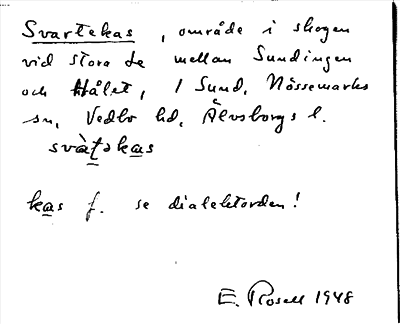 Svartekas, område i skogen
vid stora Le mellan Sundingen
och Hålet, 1 Sund, Nössemarks
sn, Vedbo hd, Älvsborgs l.
svàt̲əka̲s
ka̲s f. se dialektorden!
E. Rosell 1948